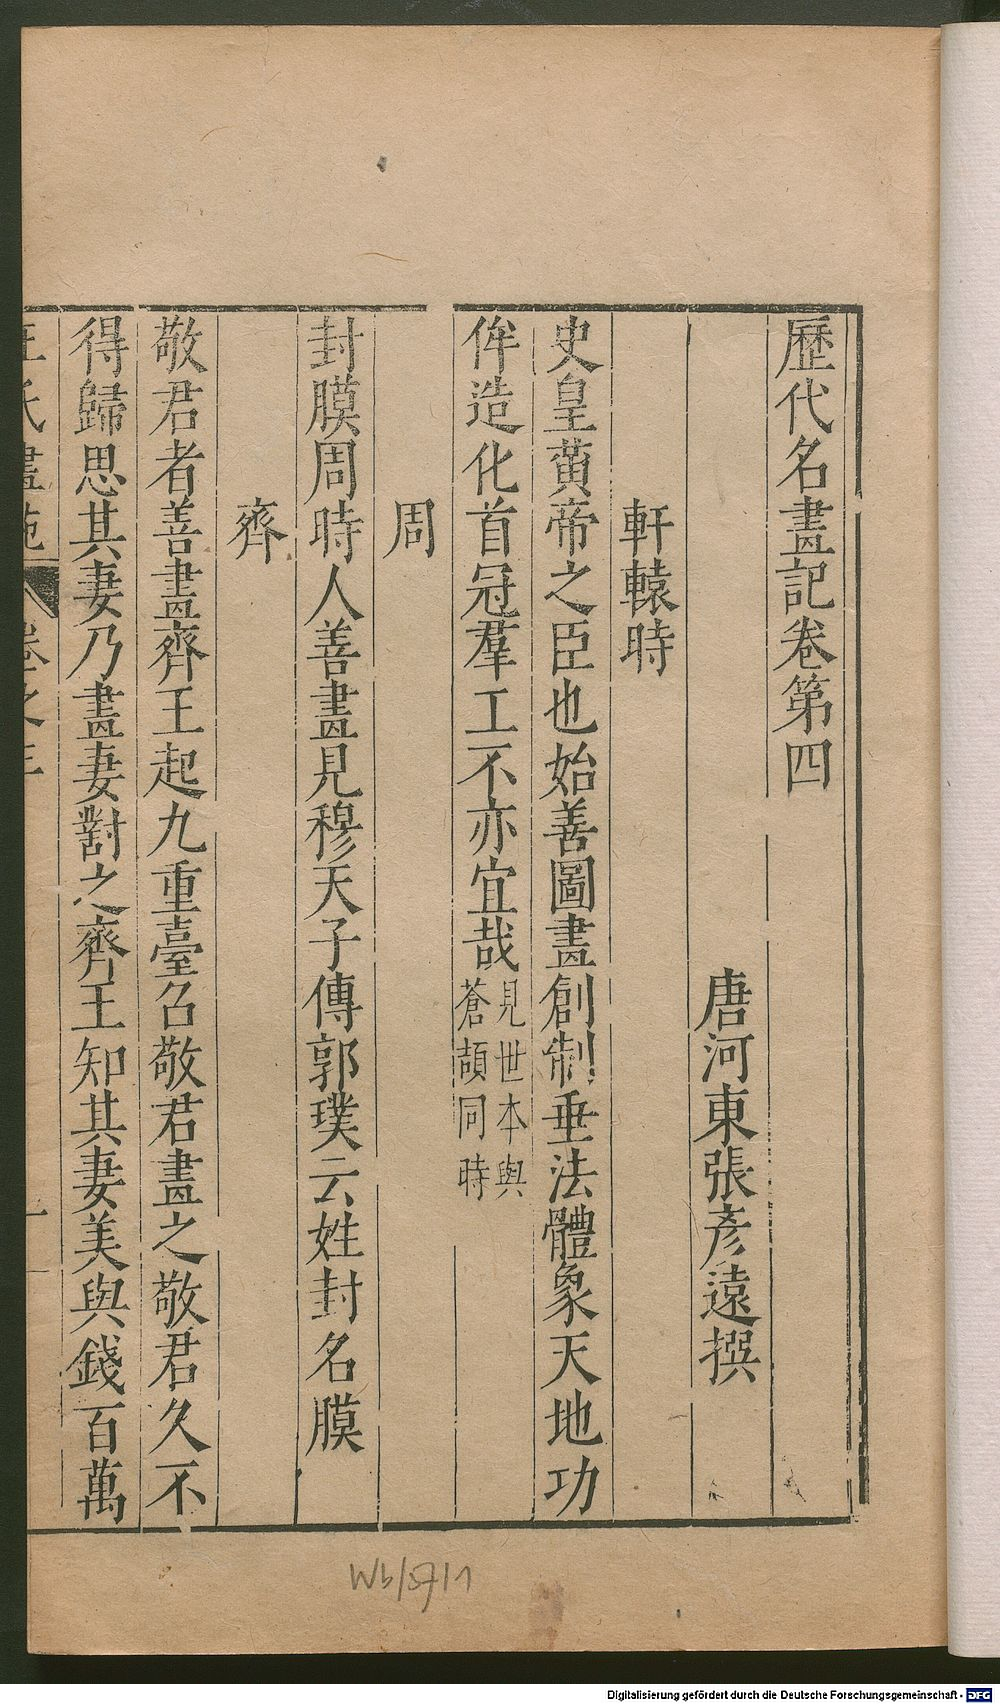 歷代名畫記卷第四
唐河東張彥遠撰
軒轅時
史皇黃帝之臣也始善圖畫創制垂法體象天地功
侔造化首冠羣工不亦宜哉見世本與
蒼頡同時
周
封膜周時人善畫見穆天子傳郭璞云姓封名膜
齊
敬君者善畫齊王起九重臺召敬君畫之敬君久不
得歸思其妻乃畫妻對之齊王知其妻美與錢百萬
王氏畫苑 卷之三 一
Wb/57/1
Digitalisierung gefördert durch die Deutsche Forschungsgemeinschaft - DFG